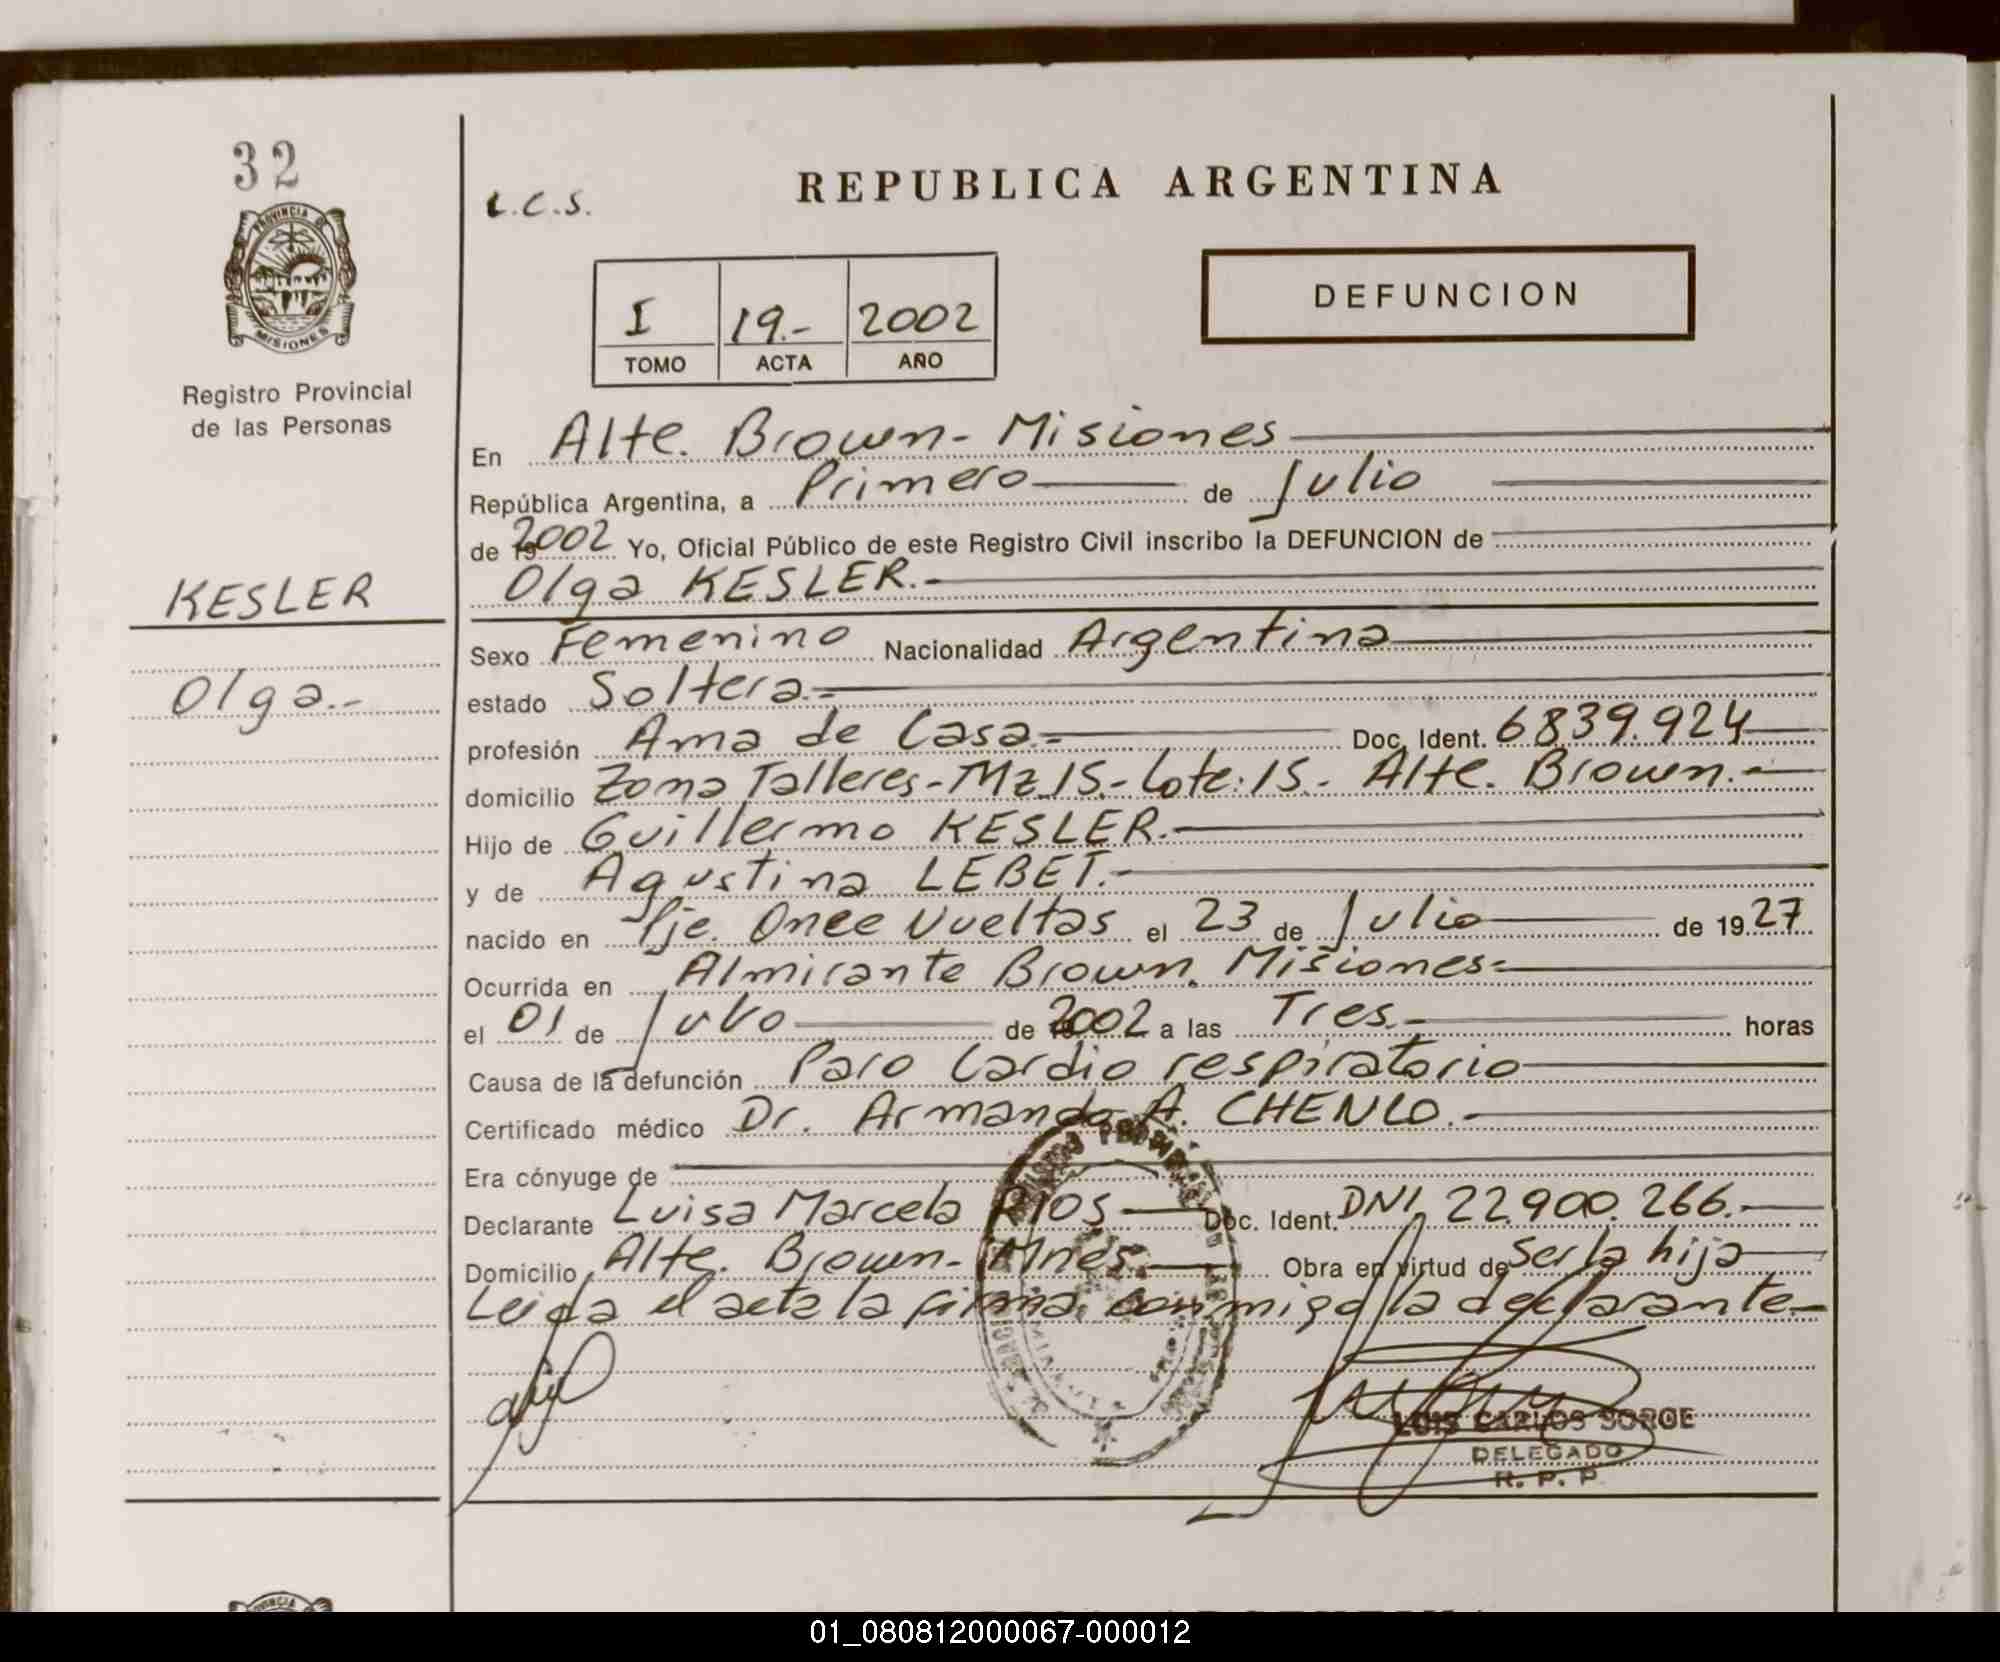 32
PROVINCIA DE
MISIONES
Registro Provincial
de las Personas
KESLER
Olga.-
L.C.S.
REPUBLICA ARGENTINA
I 19.- 2002
TOMO ACTA AÑO
DEFUNCION
En Alte. Brown - Misiones
República Argentina, a Primero de Julio
de 2002 Yo, Oficial Público de este Registro Civil inscribo la DEFUNCION de
Olga KESLER.-
Sexo Femenino Nacionalidad Argentina
estado Soltera.-
profesión Ama de Casa.- Doc. Ident. 6839.924
domicilio Zona Talleres - Mz 15.- Lote: 15.- Alte. Brown.-
Hijo de Guillermo KESLER.-
y de Agustina LEBET.-
nacido en Pje. Once Vueltas el 23 de Julio de 1927
Ocurrida en Almirante Brown. Misiones.-
el 01 de Julio de 2002 a las Tres.- horas
Causa de la defunción Paro Cardio respiratorio
Certificado médico Dr. Armando A. CHENLO.-
Era cónyuge de
Declarante Luisa Marcela RIOS Doc. Ident. DNI. 22.900.266.-
Domicilio Alte. Brown - Mnes.- Obra en virtud de Ser la hija
Leida el acta la firma conmigo la declarante.-
LUIS CARLOS JORGE
DELEGADO
R. P. P.
01_080812000067-000012